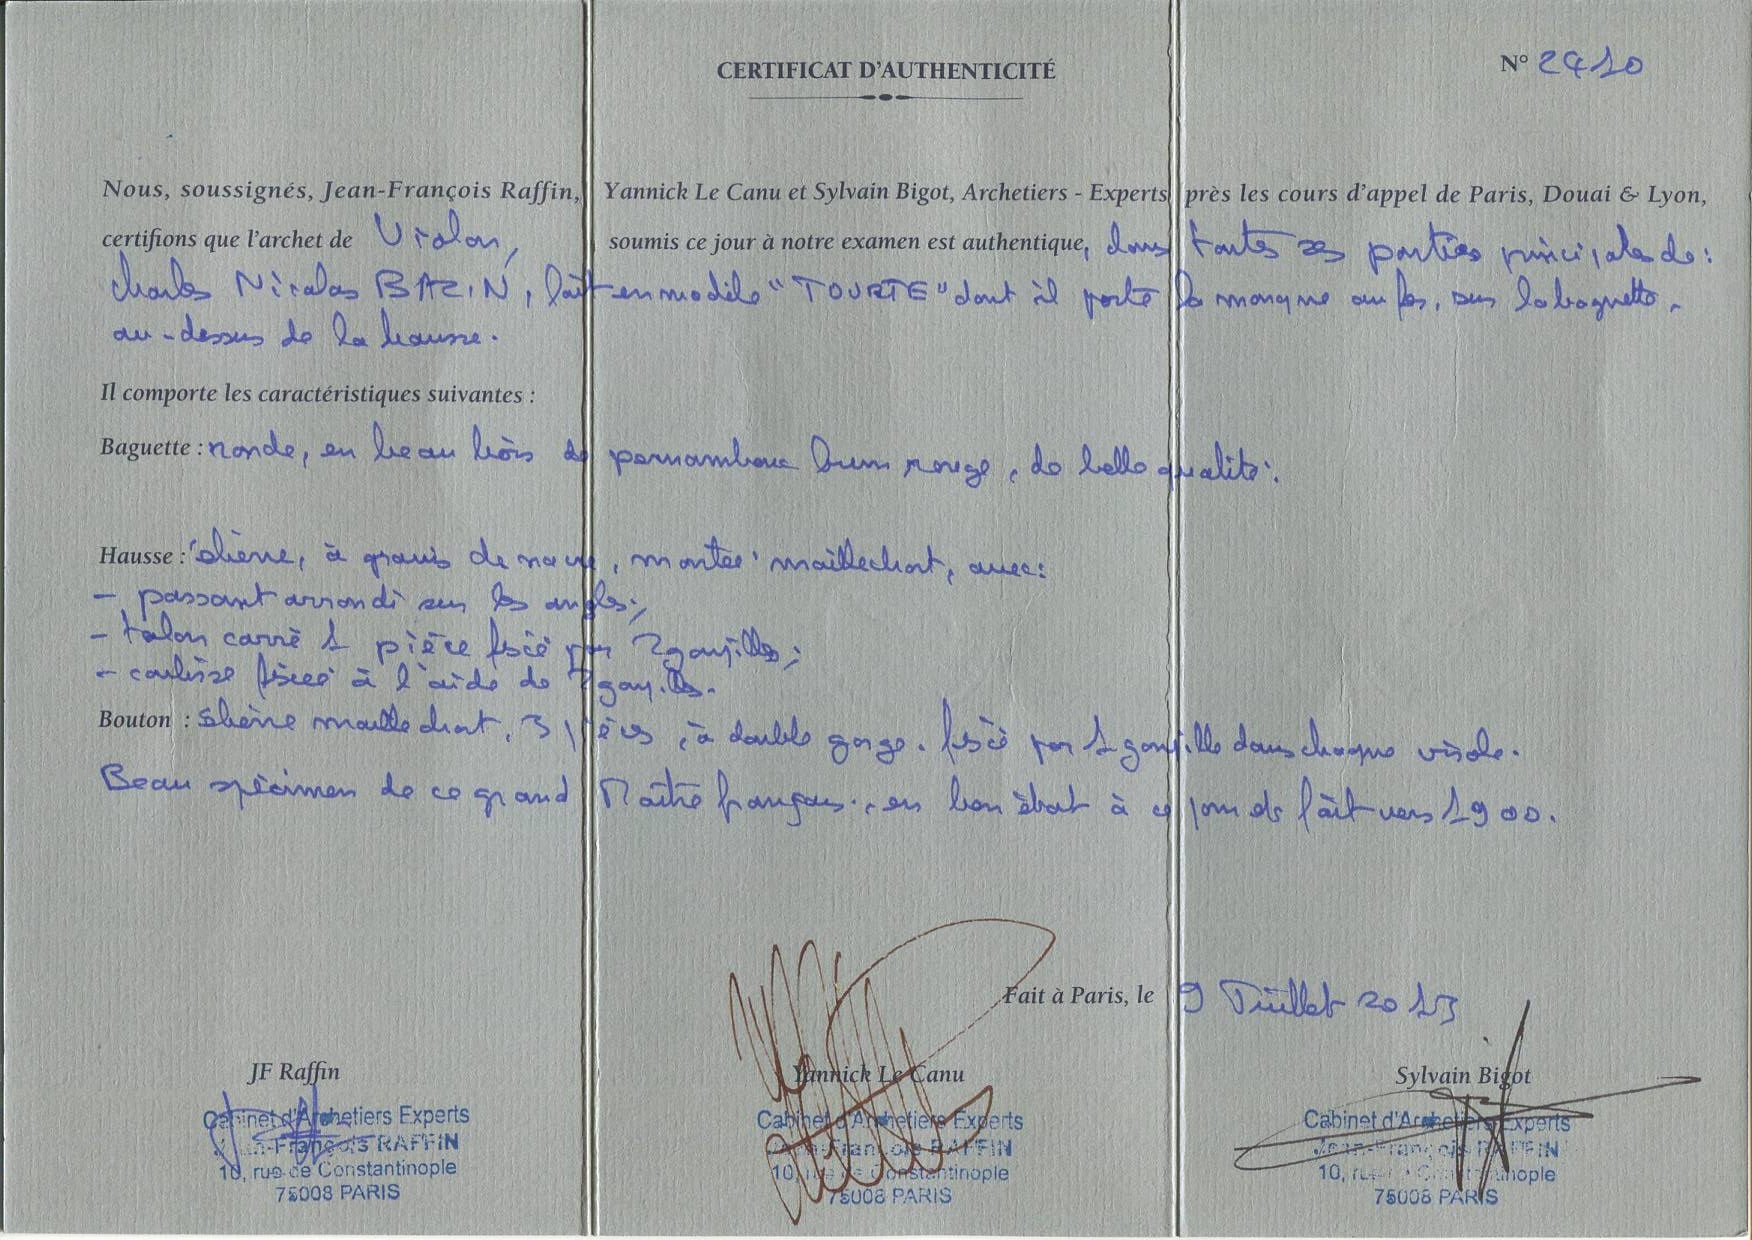 CERTIFICAT D'AUTHENTICITÉ
N° 2410
Nous, soussignés, Jean-François Raffin, Yannick Le Canu et Sylvain Bigot, Archetiers - Experts près les cours d'appel de Paris, Douai & Lyon,
certifions que l'archet de Violon, soumis ce jour à notre examen est authentique, dans toutes ses parties principales de :
Charles Nicolas BAZIN, fait en modèle "TOURTE" dont il porte la marque au fer, sur la baguette,
au-dessus de la hausse.
Il comporte les caractéristiques suivantes :
Baguette : ronde, en beau bois de pernambouc brun rouge, de belle qualité.
Hausse : ébène, à grains de nacre, montée maillechort, avec :
- passant arrondi sur les angles;
- talon carré 1 pièce fixé par 2 goupilles;
- coulisse fixée à l'aide de 2 goupilles.
Bouton : ébène maillechort, 3 pièces, à double gorge, fixé par 1 goupille dans chaque virole.
Beau spécimen de ce grand Maître français, en bon état à ce jour et fait vers 1900.
Fait à Paris, le 9 Juillet 2013
JF Raffin
Yannick Le Canu
Sylvain Bigot
Cabinet d'Archetiers Experts
Jean-François RAFFIN
10, rue de Constantinople
75008 PARIS
Cabinet d'Archetiers Experts
Jean-François RAFFIN
10, rue de Constantinople
75008 PARIS
Cabinet d'Archetiers Experts
Jean-François RAFFIN
10, rue de Constantinople
75008 PARIS